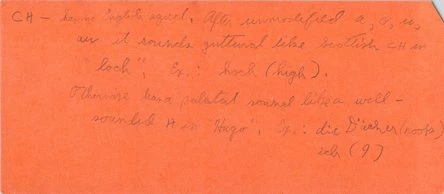 CH – has no English equival. After unmodified a, o, u,
au it sounds guttural like Scottish CH in
"loch". Ex.: hoch (high).
Otherwise has a palatal sound like a well-
sounded H in "Hugo". Ex.: die (books)
ich (I)